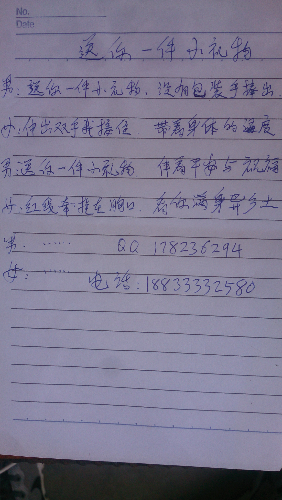 No.
Date
送你一件小礼物
男:送你一件小礼物.没有包装手捧出
女:伸出双手来接住 带着身体的温度
男:送你一件小礼物 伴着平安与祝福
女:红线牵挂在胸口.
男:…… QQ 178236294
女:…… 电话:18833332580